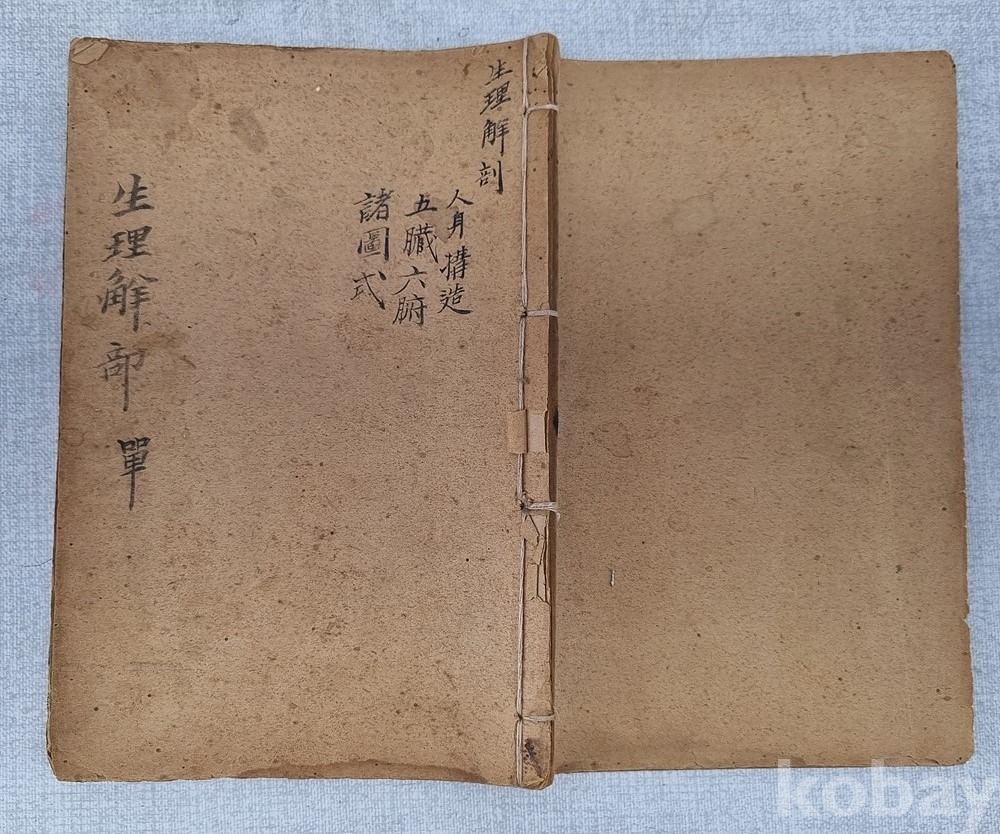 生理觧剖
人身搆造
五臟六腑
諸圖式
生理觧部 單
kobay